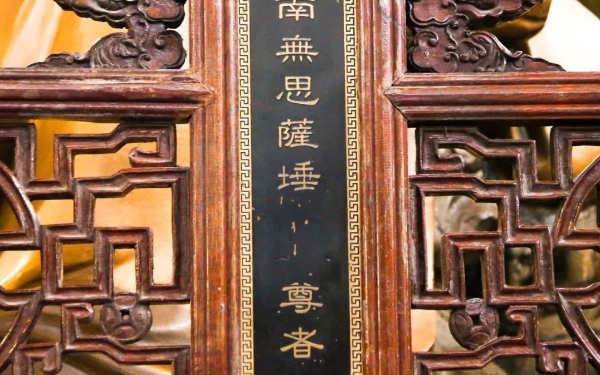 南無思薩埵尊者